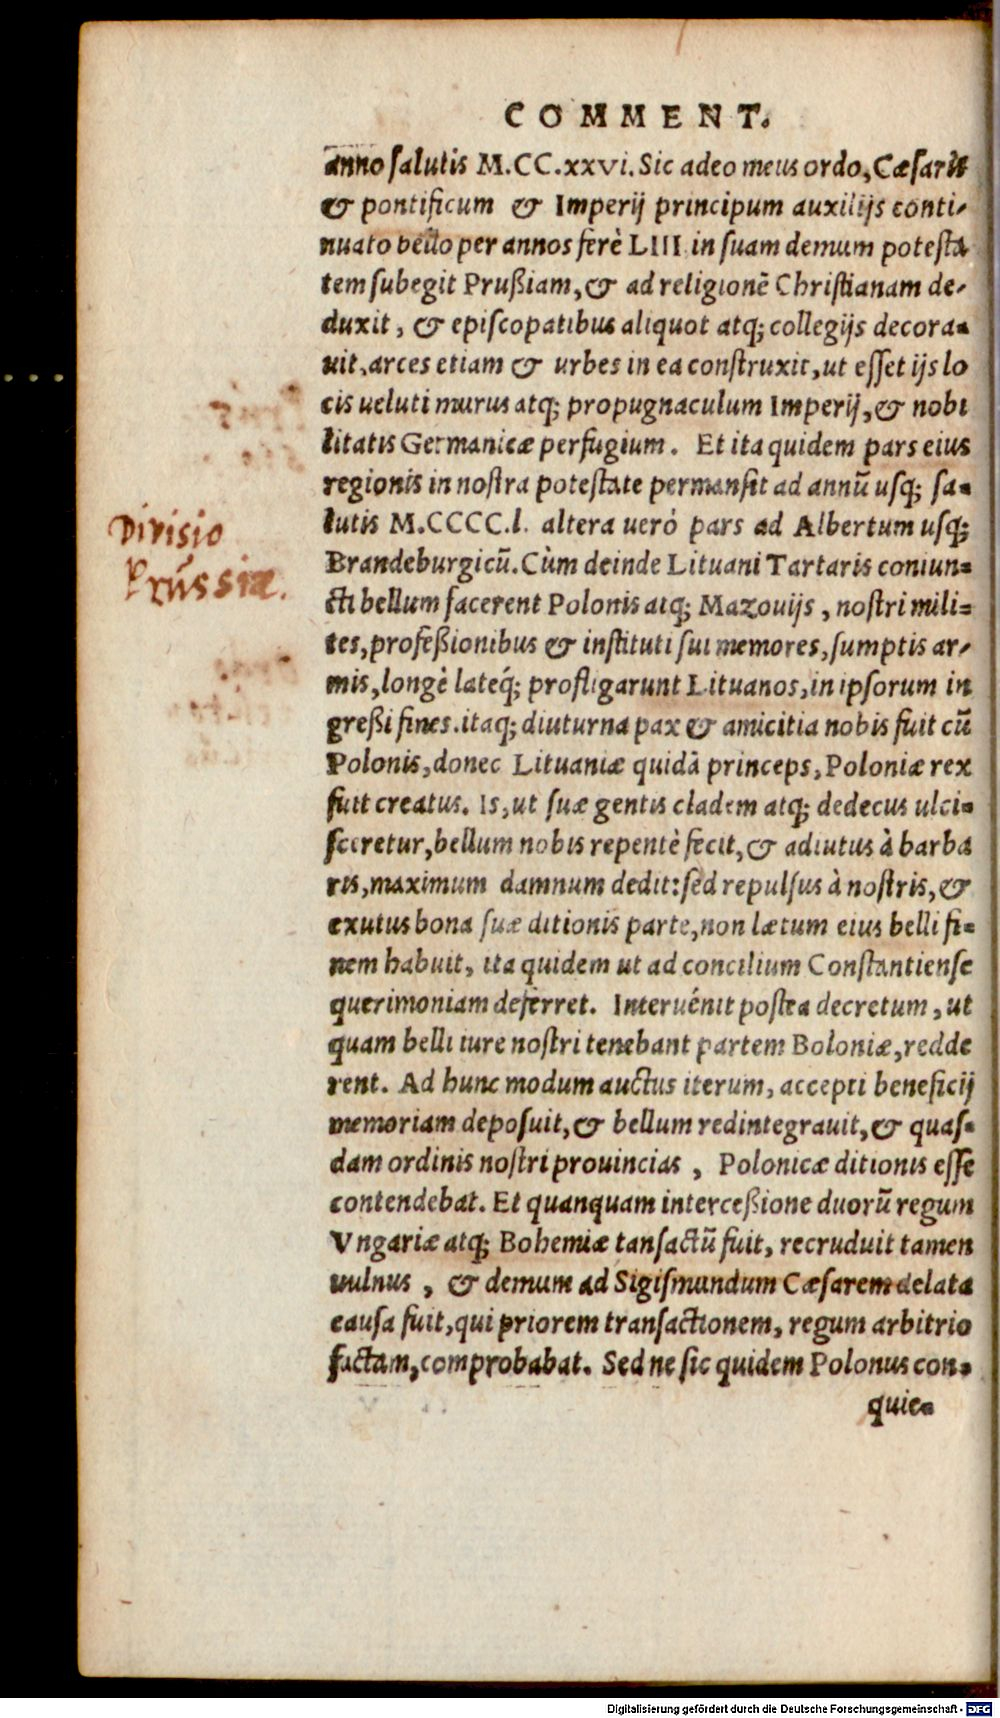 COMMENT.
anno salutis M.CC.xxvi. Sic adeo meus ordo, Cæsaris
& pontificum & Imperij principum auxilijs conti-
nuato bello per annos ferè LIII in suam demum potesta
tem subegit Prußiam, & ad religionē Christianam de-
duxit, & episcopatibus aliquot atq; collegijs decora-
uit, arces etiam & urbes in ea construxit, ut esset ijs lo
cis ueluti murus atq; propugnaculum Imperij, & nobi
litatis Germanicæ perfugium. Et ita quidem pars eius
regionis in nostra potestate permansit ad annū usq; sa-
lutis M.CCCC.l. altera ueró pars ad Albertum usq;
Brandeburgicū. Cùm deinde Lituani Tartaris coniun-
cti bellum facerent Polonis atq; Mazouijs, nostri mili-
tes, profeßionibus & instituti sui memores, sumptis ar-
mis, longè latéq; profligarunt Lituanos, in ipsorum in
greßi fines. itaq; diuturna pax & amicitia nobis fuit cū
Polonis, donec Lituaniæ quidā princeps, Poloniæ rex
fuit creatus. Is, ut suæ gentis cladem atq; dedecus ulci-
sceretur, bellum nobis repentè fecit, & adiutus à barba
ris, maximum damnum dedit: sed repulsus à nostris, &
exutus bona suæ ditionis parte, non lætum eius belli fi-
nem habuit, ita quidem ut ad concilium Constantiense
querimoniam deferret. Interuénit postea decretum, ut
quam belli iure nostri tenebant partem Boloniæ, redde
rent. Ad hunc modum auctus iterum, accepti beneficij
memoriam deposuit, & bellum redintegrauit, & quas-
dam ordinis nostri prouincias, Polonicæ ditionis esse
contendebat. Et quanquam interceßione duorū regum
Vngariæ atq; Bohemiæ tansactū fuit, recruduit tamen
uulnus, & demum ad Sigismundum Cæsarem delata
causa fuit, qui priorem transactionem, regum arbitrio
factam, comprobabat. Sed ne sic quidem Polonus con-
quie-
Divisio
Prússiæ.
Digitalisierung gefördert durch die Deutsche Forschungsgemeinschaft - DFG